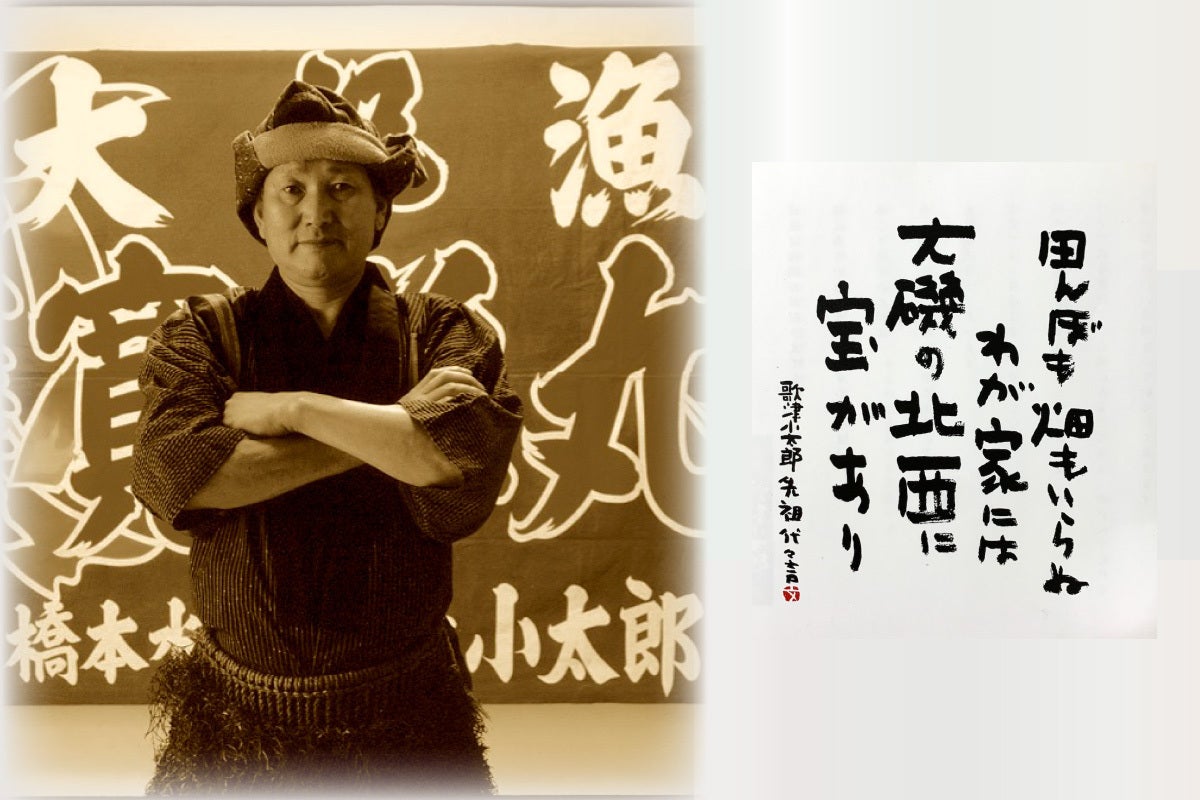 大 漁
寳 丸
橋本 小太郎
田んぼも畑もいらぬ
わが家には
大磯の北西に
宝があり
歌津小太郎先祖代々言